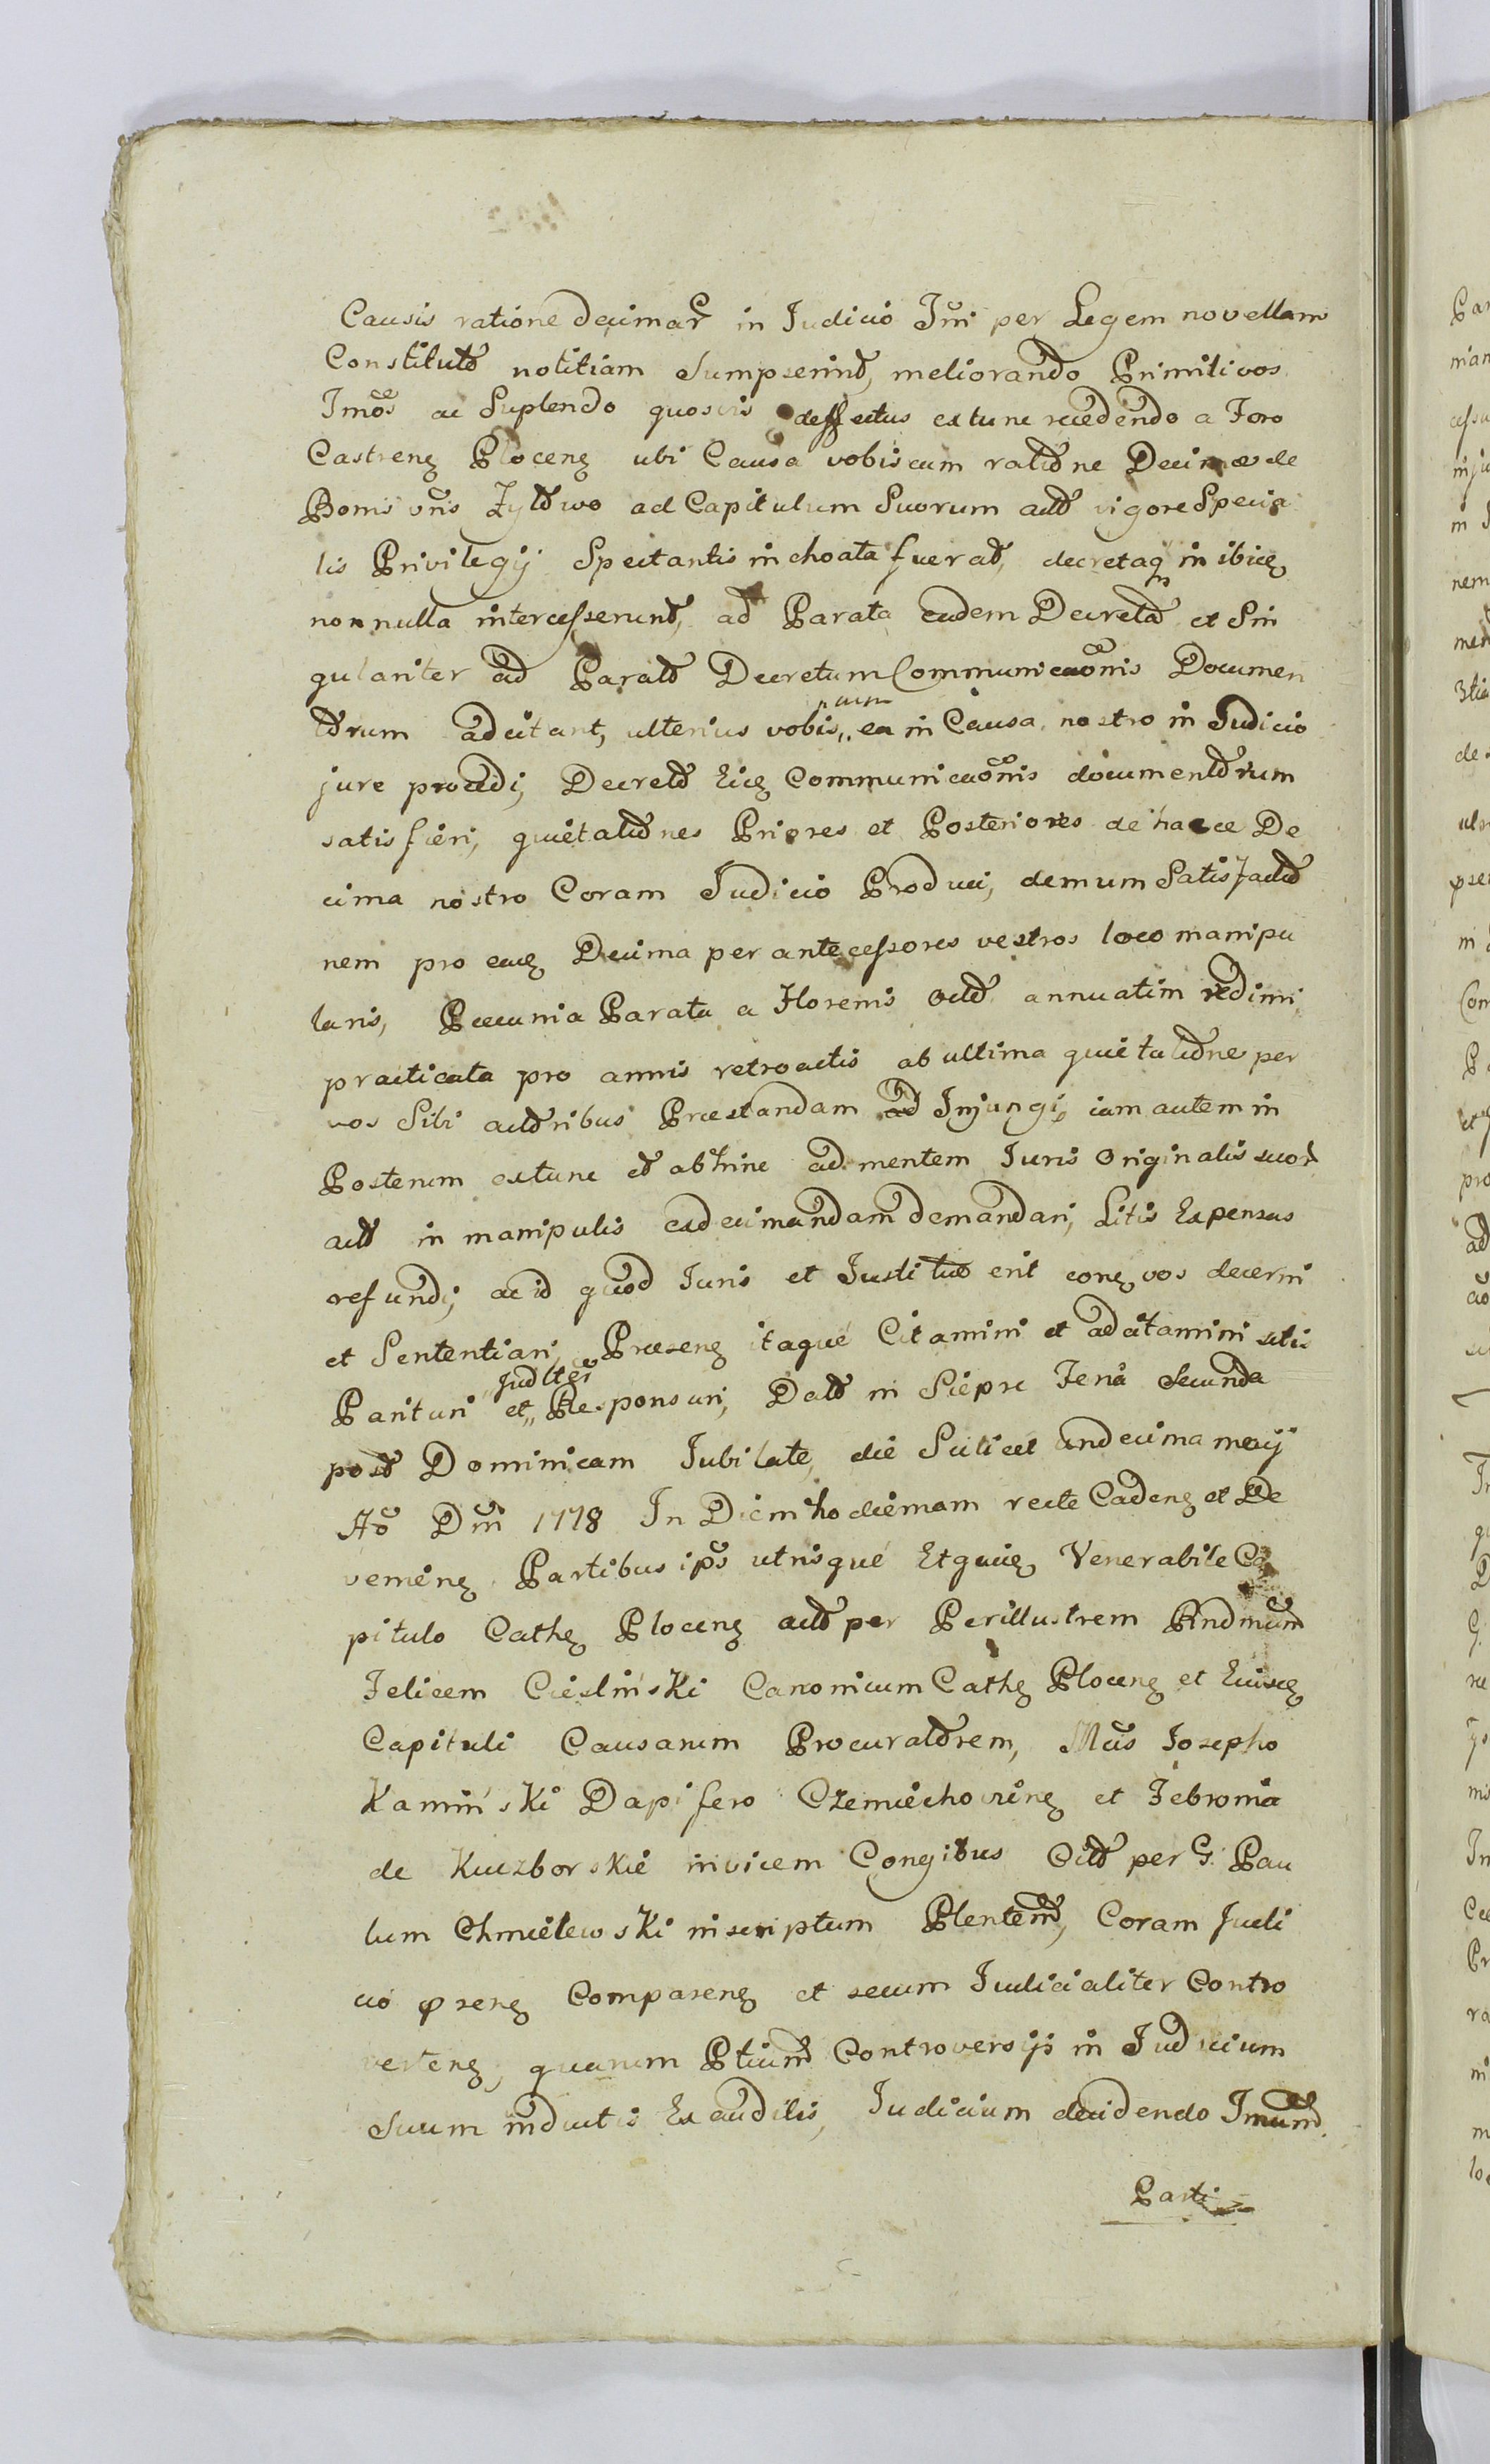 Causis ratione decimar in Judicio Jmi per Legem novellam
Constitut notitiam Sumpserint, meliorando Primitivos
Jmos ac Suplendo quosvis deffectus extunc recedendo a Foro
Castreng Ploceng ubi Causa vobiscum ratione Decimæ de
Bonis vris ad Capitulum Suorum act vigore Specia
lis Privilegij Spectantis inchoata fuerat, decretaq in ibiq
nonnulla intercesserunt, ad Parata eadem Decreta et Sin
gulariter ad Parat Decretum Communicaonis Documen
torum adcitant, ulterius vobis,, cum ea in Causa nostro in Judicio
jure procedi, Decreto Eiq Communicaonis documentorum
satisfieri, quietationes Priores et Posteriores de hacce De
cima nostro Coram Judicio Produci, demum Satisfactio
nem pro eaq Decima per antecessores vestros loco manipu
laris, Pecunia Parata a Florenis octo annuatim redimi
practicata pro annis retroactis ab ultima quietatione per
vos Sibi actoribus Præstandam Injungi, iam autem in
Posterum extunc et abhinc ad mentem Juris Originalis suor
act in manipulis exdecimandam demandari, Litis Expensas
refundi, ac id quod Juris et Justitiæ erit cong vos decerni
et Sententiari, Præseng itaque Citamini et adcitamini sitis
Parituri et,, Judlter Responsuri, Dat in Sieprc Feria Secunda
post Dominicam Jubilate, die Scilicet undecima maij
Ao Dni 1778 In Diem hodiernam recte Cadeng et De
venieng Partibus ips utrisque Etquiq Venerabile Ca
pitulo Cathg Ploceng act per Perillustrem Rndmum
Felicem Cieslinski Canonicum Cathg Ploceng et Eiusq
Capituli Causarum Procuratorem, Mcis Josepho
Kaminski Dapifero et Febronia
de Kuczborskie invicem Congibus Cit per G. Pau
lum Chmielewski inscriptum Plentem, Coram Judi
cio pseng Compareng et secum Judicialiter Contro
verteng, quarum Ptium Controversijs in Judicium
Suum inductis Exauditis, Judicium decidendo Jmum
Parti